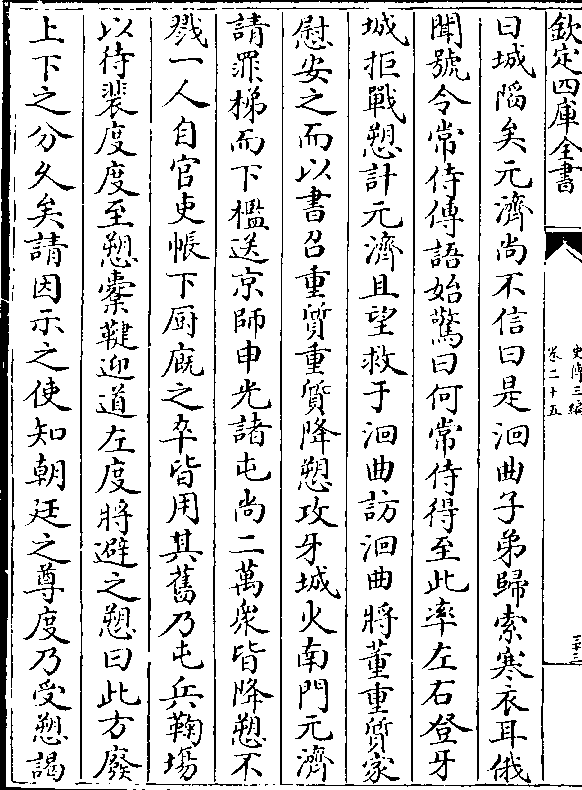 欽定四庫全書
史傳三編
卷二十五
三十三
曰城陷矣元濟尚不信曰是洄曲子弟歸索寒衣耳俄
聞號令常侍傳語始驚曰何常侍得至此率左右登牙
城拒戰愬計元濟且望救于洄曲訪洄曲將董重質家
慰安之而以書召重質重質降愬攻牙城火南門元濟
請罪梯而下檻送京師申光諸屯尚二萬衆皆降愬不
戮一人自官吏帳下厨廐之卒皆用其舊乃屯兵鞠場
以待裴度度至愬櫜鞬迎道左度將避之愬曰此方廢
上下之分久矣請因示之使知朝廷之尊度乃受愬謁